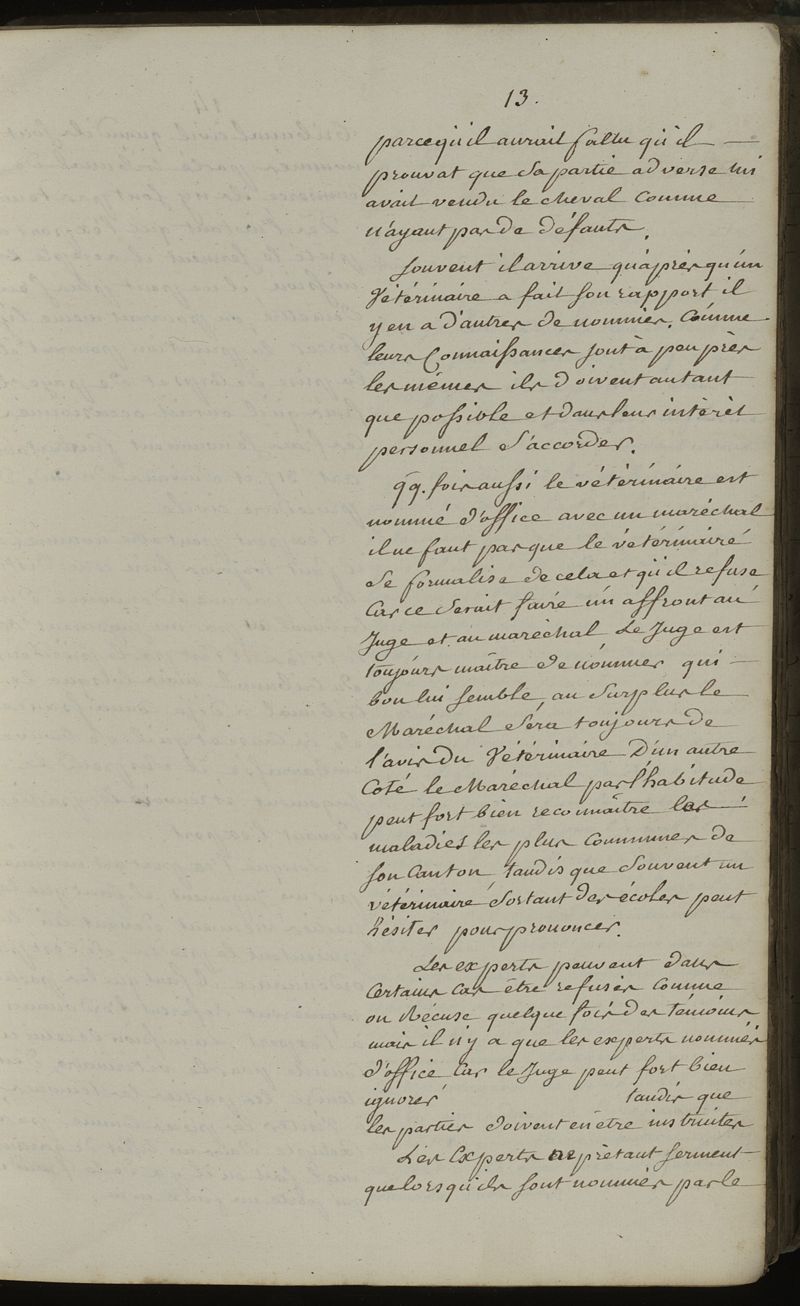 13.
parcequ'il aurait fallu qu'il —
prouvat que sa partie adverse lui
avait vendu le cheval comme
n'ayant pas de défauts.
Souvent il arrive qu'après qu'un
Vétérinaire a fait son rapport il
y en a d'autres de nommés. Comme
leurs Connaissances sont à peu près
les mêmes ils doivent autant
que possible et dans leur intérêt
personnel s'accorder.
qq. fois aussi le vétérinaire est
nommé d'office avec un maréchal
il ne faut pas que le vétérinaire
se formalise de cela et qu'il refuse
Car ce serait faire un affront au
Juge et au maréchal Le Juge est
toujours maître de nommer qui —
bon lui semble, au surplus le
Maréchal sera toujours de
l'avis du Vétérinaire D'un autre
Coté le Maréchal par l'habitude
peut fort bien reconnaître les —
maladies les plus communes de
son Canton, tandis que souvent un
vétérinaire sortant des écoles peut
hésiter pour prononcer.
Les experts peuvent dans
Certains Cas être refusés comme
on Récuse quelque fois des témoins
mais il n'y a que les experts nommés
d'office Car le Juge peut fort bien
ignorer tandis que
les parties doivent en être instruites
Les Experts ne prêtant serment
que lorsqu'ils sont nommés par le